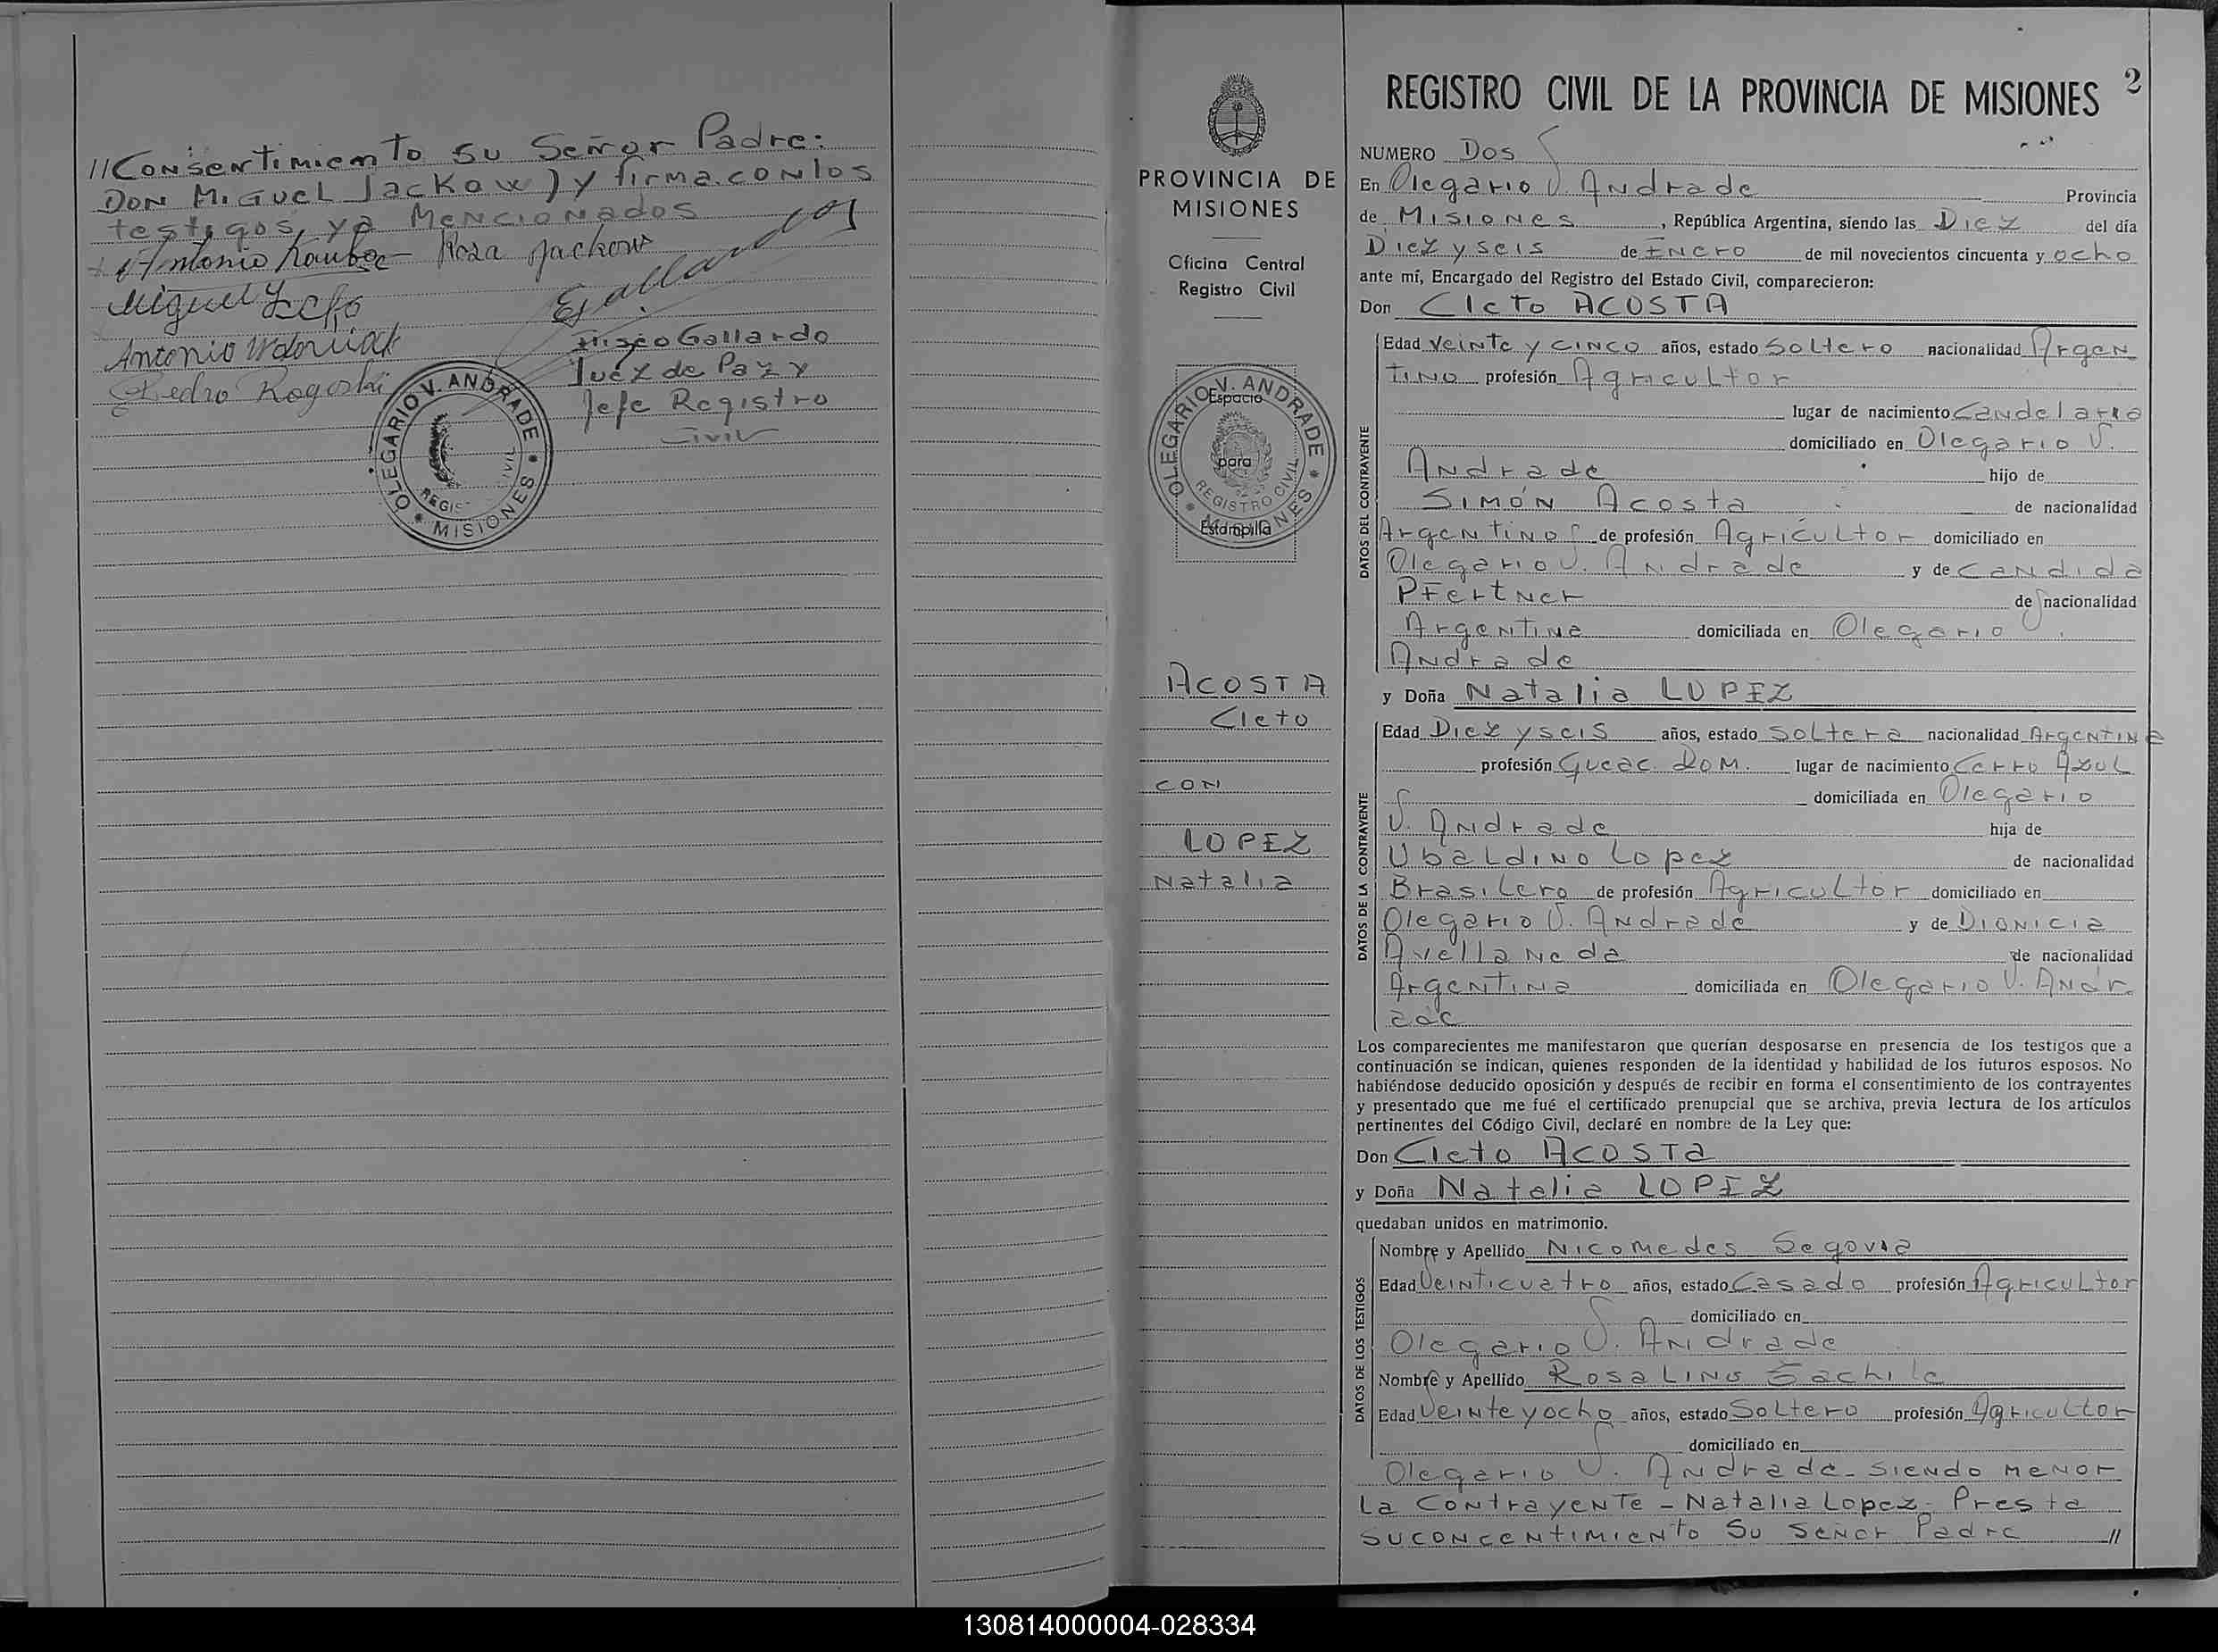 //Consentimiento su Señor Padre:
Don Miguel Jackow) y firma con los
testigos, ya Mencionados
Antonio Rosa Jackow
Miguel
Antonio
Pedro Rogoski
Eliseo Gallardo
Juez de Paz y
Jefe Registro
Civil
OLEGARIO V. ANDRADE
MISIONES
PROVINCIA DE
MISIONES
Oficina Central
Registro Civil
OLEGARIO V. ANDRADE
REGISTRO CIVIL
MISIONES
Espacio
para
Estampilla
ACOSTA
Cleto
con
LOPEZ
Natalia
REGISTRO CIVIL DE LA PROVINCIA DE MISIONES 2
NUMERO Dos
En Olegario V. Andrade Provincia
de Misiones, República Argentina, siendo las Diez del día
Diez y seis de Enero de mil novecientos cincuenta y ocho
ante mí, Encargado del Registro del Estado Civil, comparecieron:
Don Cleto ACOSTA
DATOS DEL CONTRAYENTE
Edad veinte y cinco años, estado soltero nacionalidad Argen
tino profesión Agricultor
lugar de nacimiento Candelaria
domiciliado en Olegario V.
Andrade hijo de
Simón Acosta de nacionalidad
Argentino de profesión Agricultor domiciliado en
Olegario V. Andrade y de Candida
Pfertner de nacionalidad
Argentina domiciliada en Olegario V.
Andrade
y Doña Natalia LOPEZ
DATOS DE LA CONTRAYENTE
Edad Diez y seis años, estado soltera nacionalidad Argentina
profesión Queac. Dom. lugar de nacimiento Cerro Azul
domiciliada en Olegario
V. Andrade hija de
Ubaldino Lopez de nacionalidad
Brasilero de profesión Agricultor domiciliado en
Olegario V. Andrade y de Dionicia
Avellaneda de nacionalidad
Argentina domiciliada en Olegario V. Andr
ade
Los comparecientes me manifestaron que querían desposarse en presencia de los testigos que a
continuación se indican, quienes responden de la identidad y habilidad de los futuros esposos. No
habiéndose deducido oposición y después de recibir en forma el consentimiento de los contrayentes
y presentado que me fué el certificado prenupcial que se archiva, previa lectura de los artículos
pertinentes del Código Civil, declaré en nombre de la Ley que:
Don Cleto ACOSTA
y Doña Natalia LOPEZ
quedaban unidos en matrimonio.
DATOS DE LOS TESTIGOS
Nombre y Apellido Nicomedes Segovia
Edad Veinticuatro años, estado Casado profesión Agricultor
domiciliado en
Olegario V. Andrade
Nombre y Apellido Rosalino
Edad Veinte y ocho años, estado Soltero profesión Agricultor
domiciliado en
Olegario V. Andrade - siendo menor
la contrayente - Natalia Lopez - Presta
su concentimiento su señor Padre //
130814000004-028334